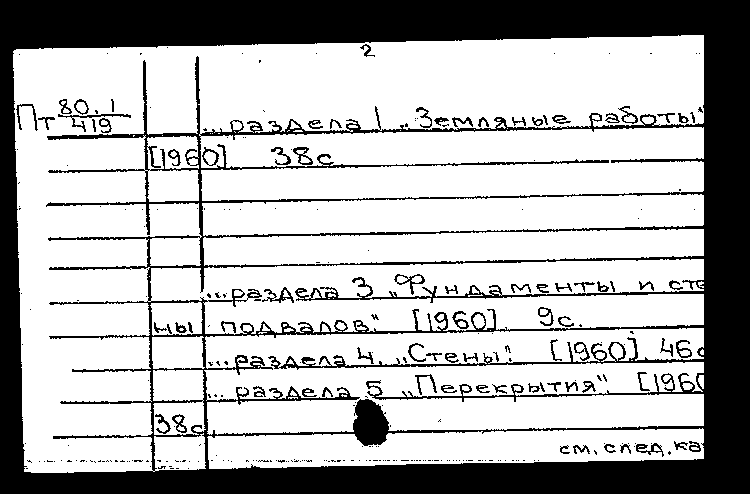 2
Пт 80.1/419
...раздела 1 „Земляные работы"
[1960] 38с
...раздела 3 „Фундаменты и сте
ны подвалов." [1960] 9с.
...раздела 4. „Стены". [1960]. 46с
...раздела 5 „Перекрытия". [1960
38с.
см. след. ка